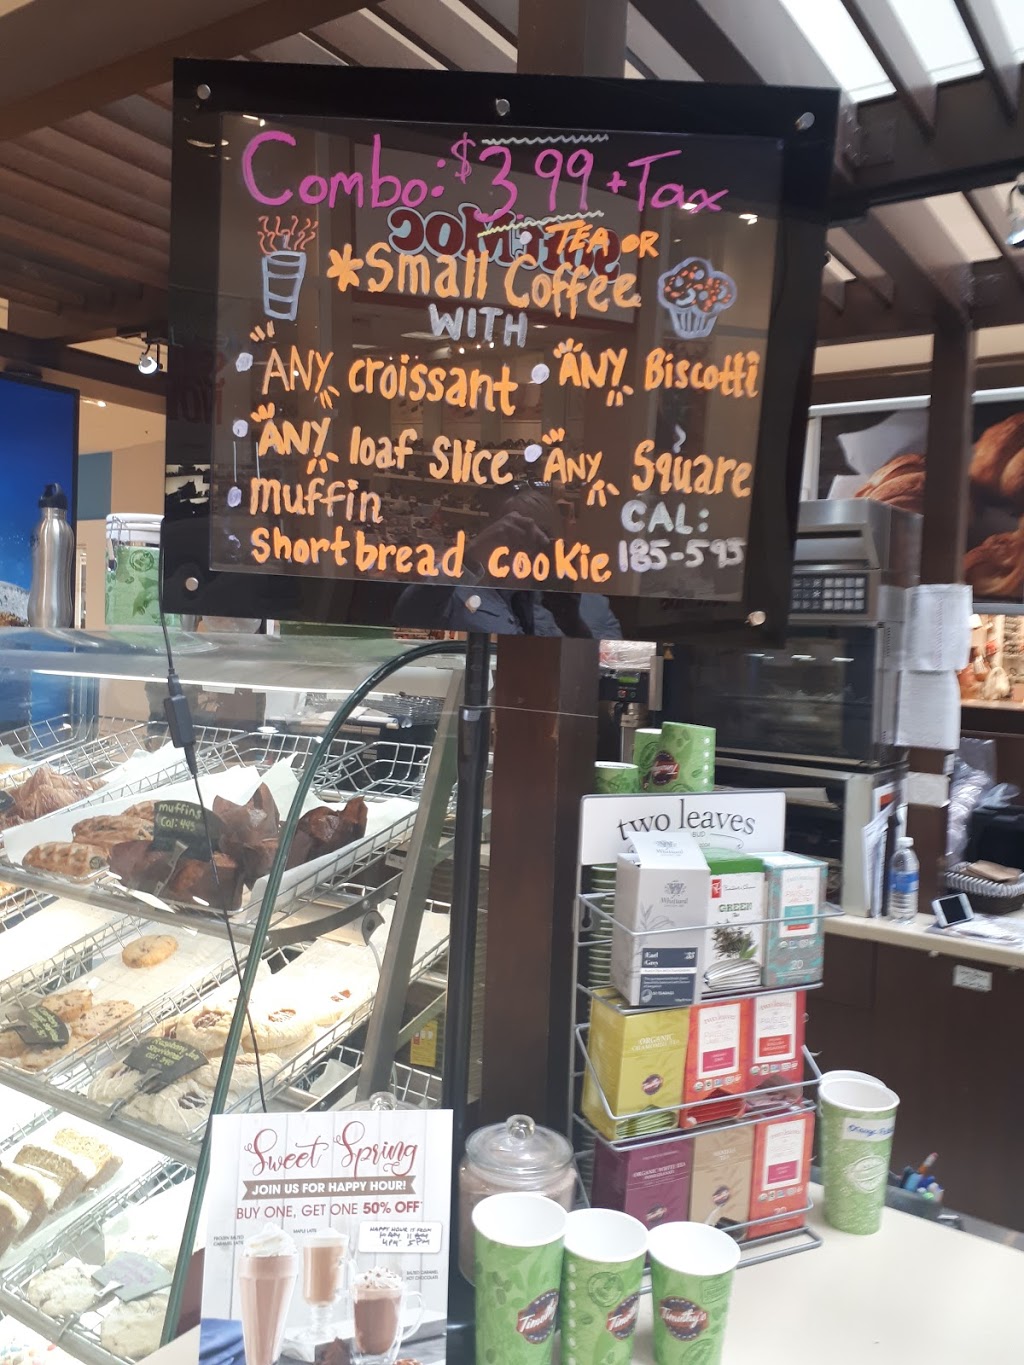 Combo: $3.99 + Tax
TEA OR
*Small Coffee
WITH
ANY croissant
ANY Biscotti
ANY loaf Slice
ANY Square
muffin
CAL:
Shortbread cookie
185-595
muffins
two leaves
Whittard
GREEN
Earl
Grey
ORGANIC
Sweet Spring
JOIN US FOR HAPPY HOUR!
BUY ONE, GET ONE 50% OFF
HAPPY HOUR IS FROM
4PM 5PM
Timothy's